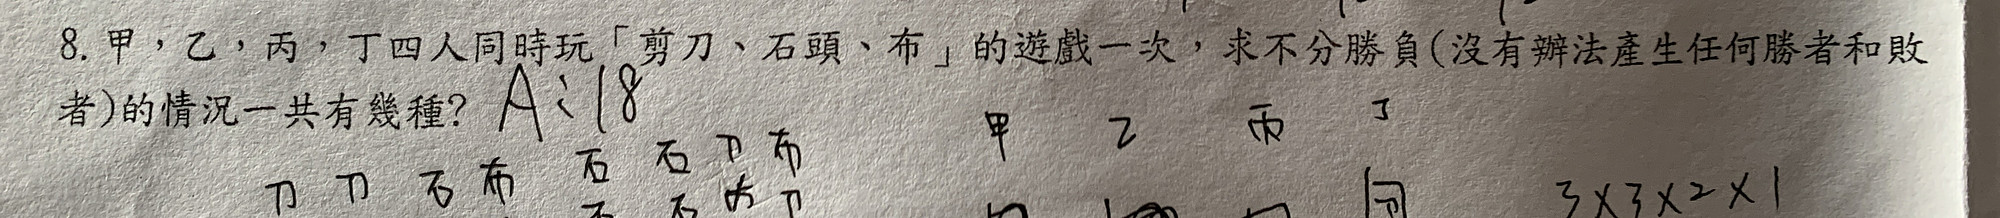 8. 甲，乙，丙，丁四人同時玩「剪刀、石頭、布」的遊戲一次，求不分勝負(沒有辦法產生任何勝者和敗
者)的情況一共有幾種? A：18
甲 乙 丙 丁
刀 刀 石 布 石 石 刀 布
3×3×2×1